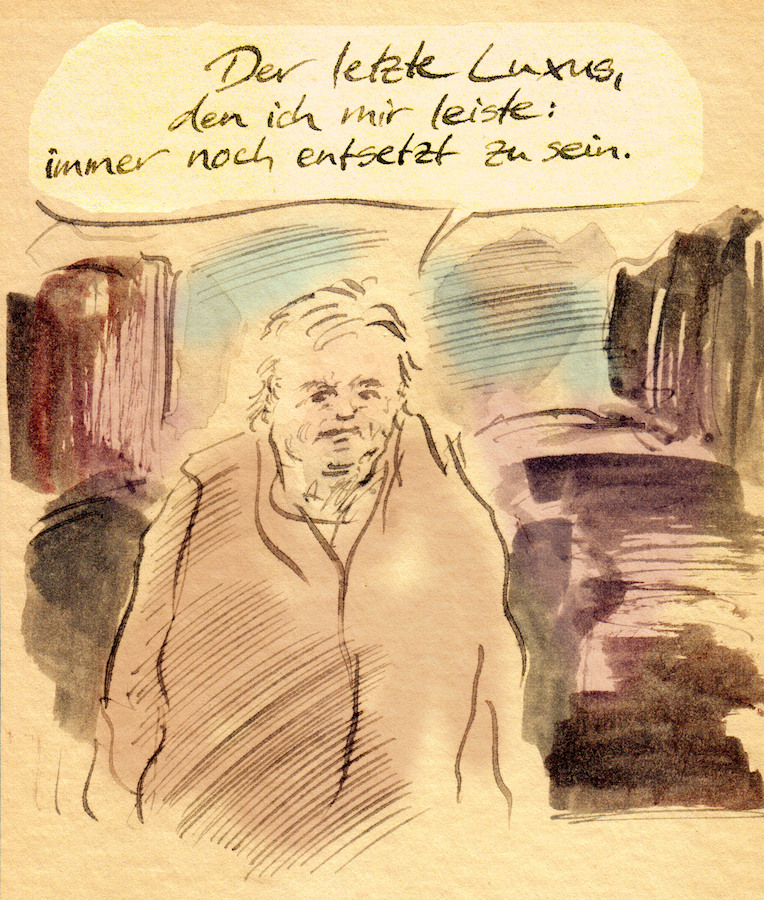 Der letzte Luxus,
den ich mir leiste:
immer noch entsetzt zu sein.